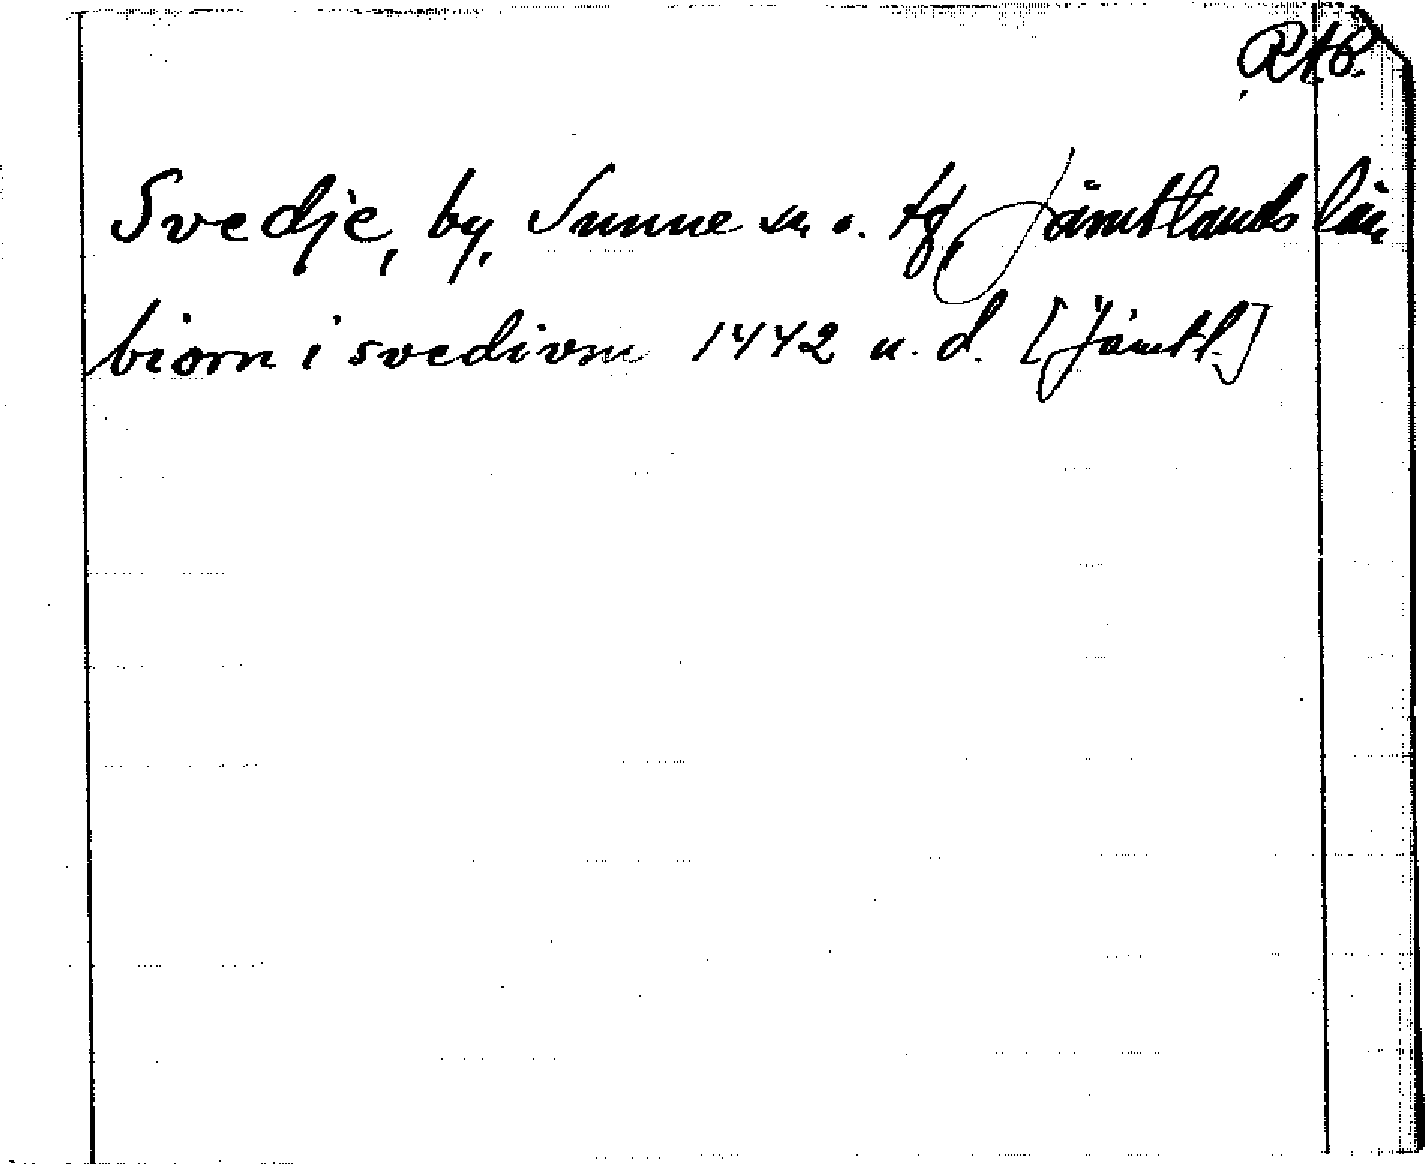 RAB.
Svedje, by, Sunne sn o. tg, Jämtlands län
biorn i svediom 1442 u. d. [Jämtl.]